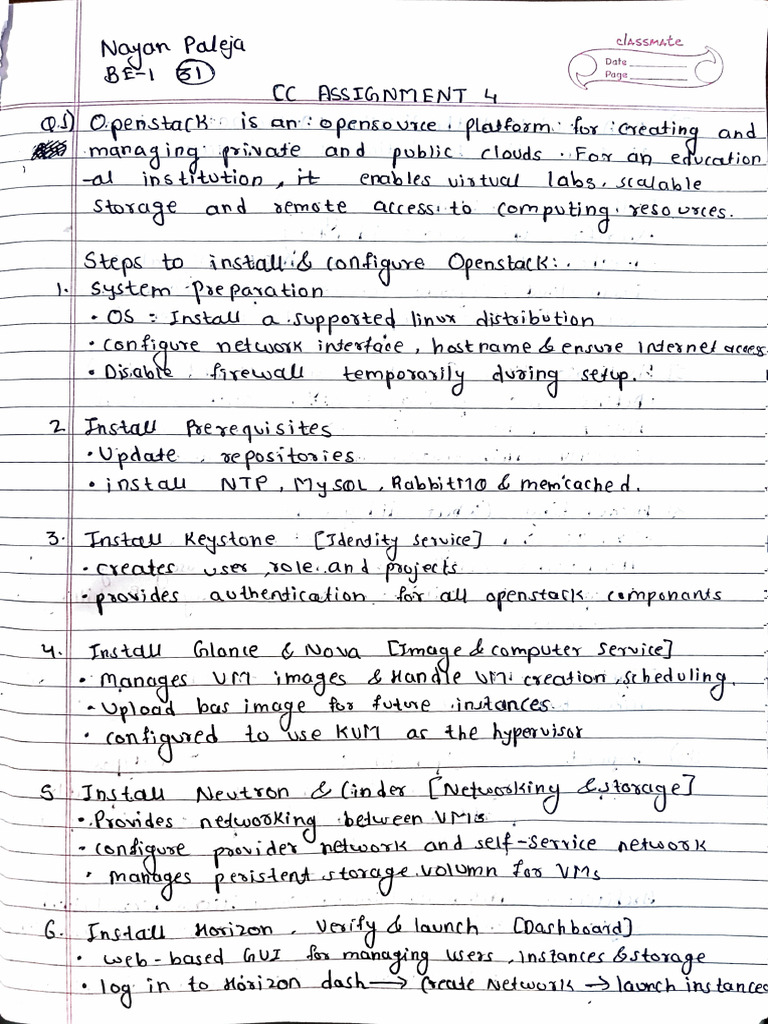 Nayan Paleja
BE-1 31
classmate
Date
Page
CC ASSIGNMENT 4
Q.1) Openstack is an opensource platform for creating and
managing private and public clouds. For an education
-al institution, it enables virtual labs, scalable
storage and remote access to computing resources.
Steps to install & configure Openstack:
1. System Preparation
• OS : Install a supported linux distribution
• configure network interface, hostname & ensure internet access
• Disable firewall temporarily during setup.
2. Install Prerequisites
• Update repositories
• install NTP, MySQL, RabbitMQ & memcached.
3. Install Keystone [Identity service]
• creates user, role and projects
• provides authentication for all openstack componants
4. Install Glance & Nova [Image & computer service]
• Manages VM images & Handle VM creation, scheduling.
• Upload bas image for future instances.
• configured to use KVM as the hypervisor
5 Install Neutron & Cinder [Networking & storage]
• Provides networking between VMs
• configure provider network and self-service network
• manages peristent storage volumn for VMs
6. Install Horizon, Verify & launch [Dashboard]
• web-based GUI for managing users, instances & storage
• log in to Horizon dash → create Network → launch instances